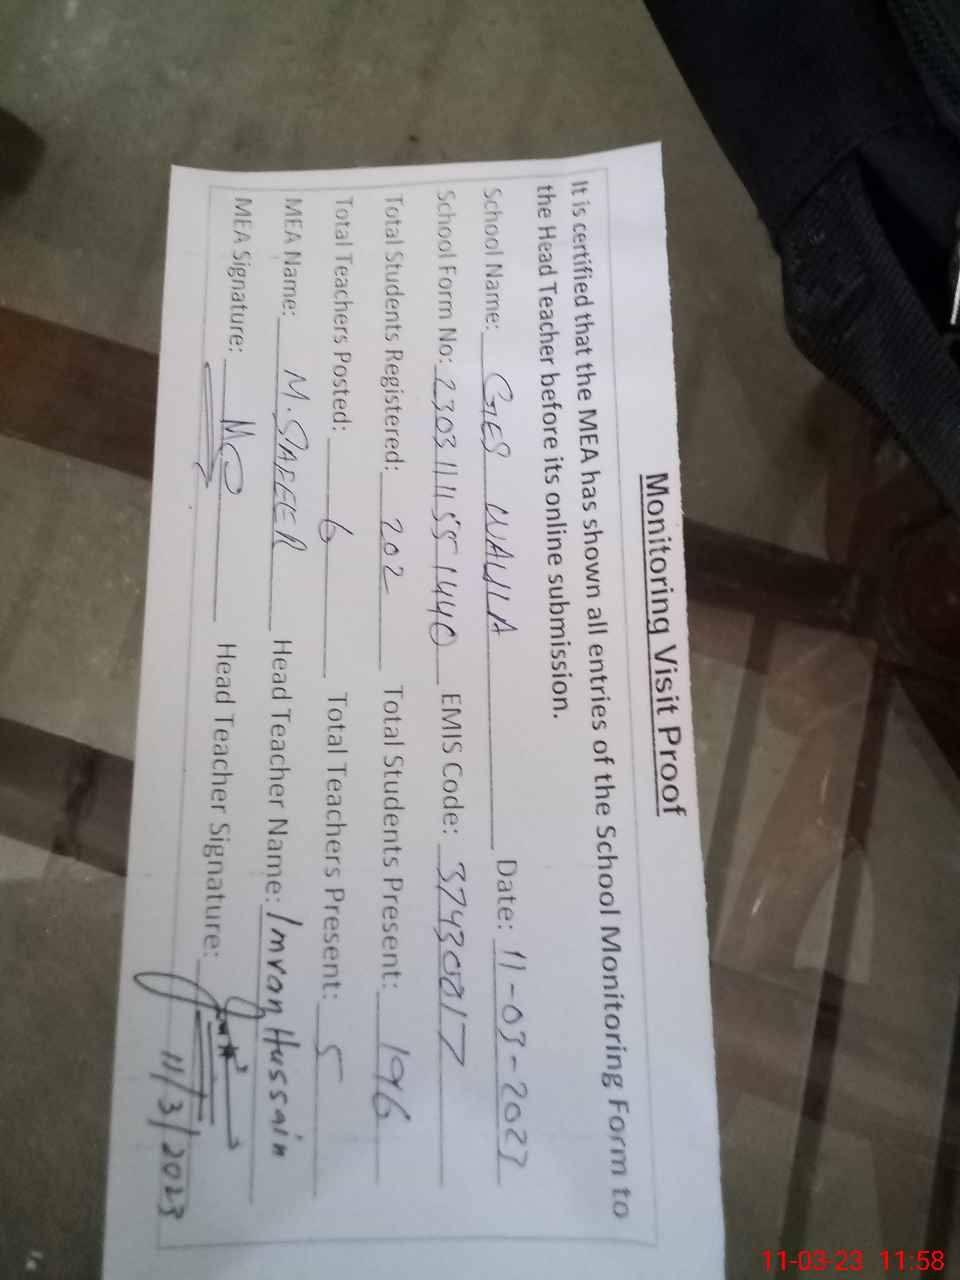 Monitoring Visit Proof
It is certified that the MEA has shown all entries of the School Monitoring Form to
the Head Teacher before its online submission.
School Name: GES Date: 11-03-2023
School Form No: 2303111551440 EMIS Code: 37430817
Total Students Registered: 202 Total Students Present: 196
Total Teachers Posted: 6 Total Teachers Present: 5
MEA Name: M. SAFEER Head Teacher Name: Imran Hussain
MEA Signature: Head Teacher Signature:
11/3/2023
11-03-23 11:58